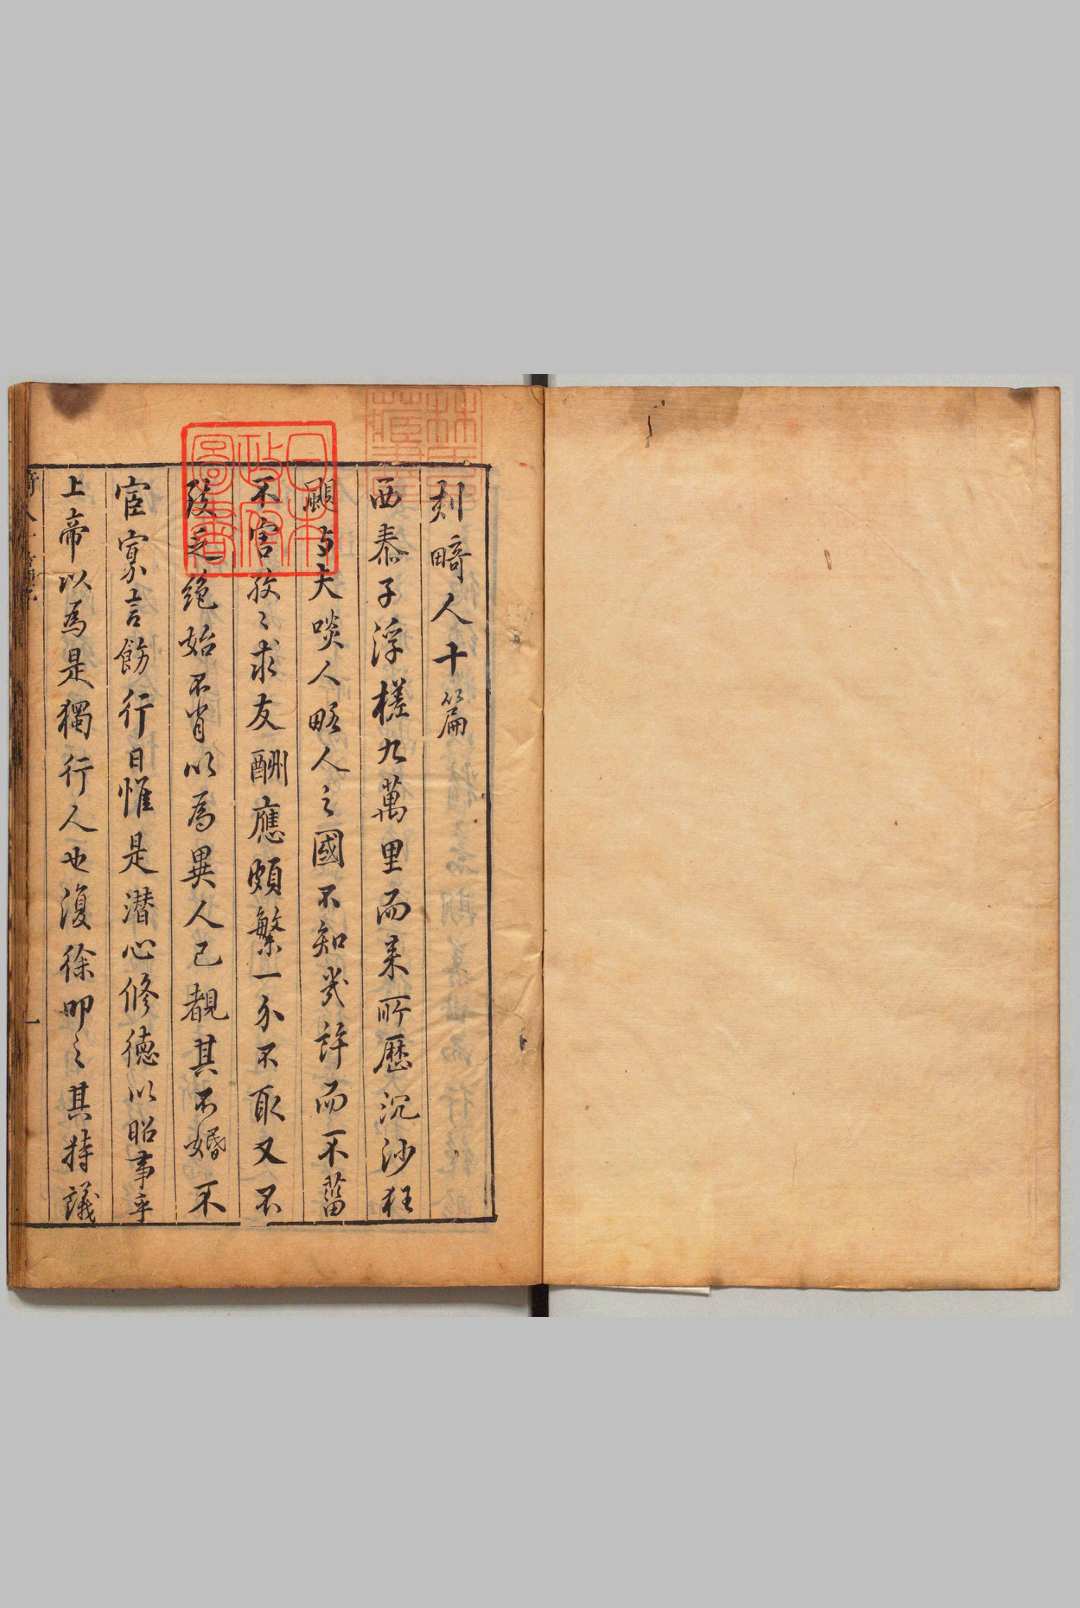 刻畸人十篇
西泰子浮槎九萬里而來所歷沉沙狂
颶與夫啖人略人之國不知幾許而不菑
不害孜〻求友酬應頗繁一介不取又不
致乏絕始不肖以為異人已覩其不婚不
宦寡言飭行日惟是潛心修德以昭事乎
上帝以為是獨行人也復徐叩之其持議
日本
政府
圖書